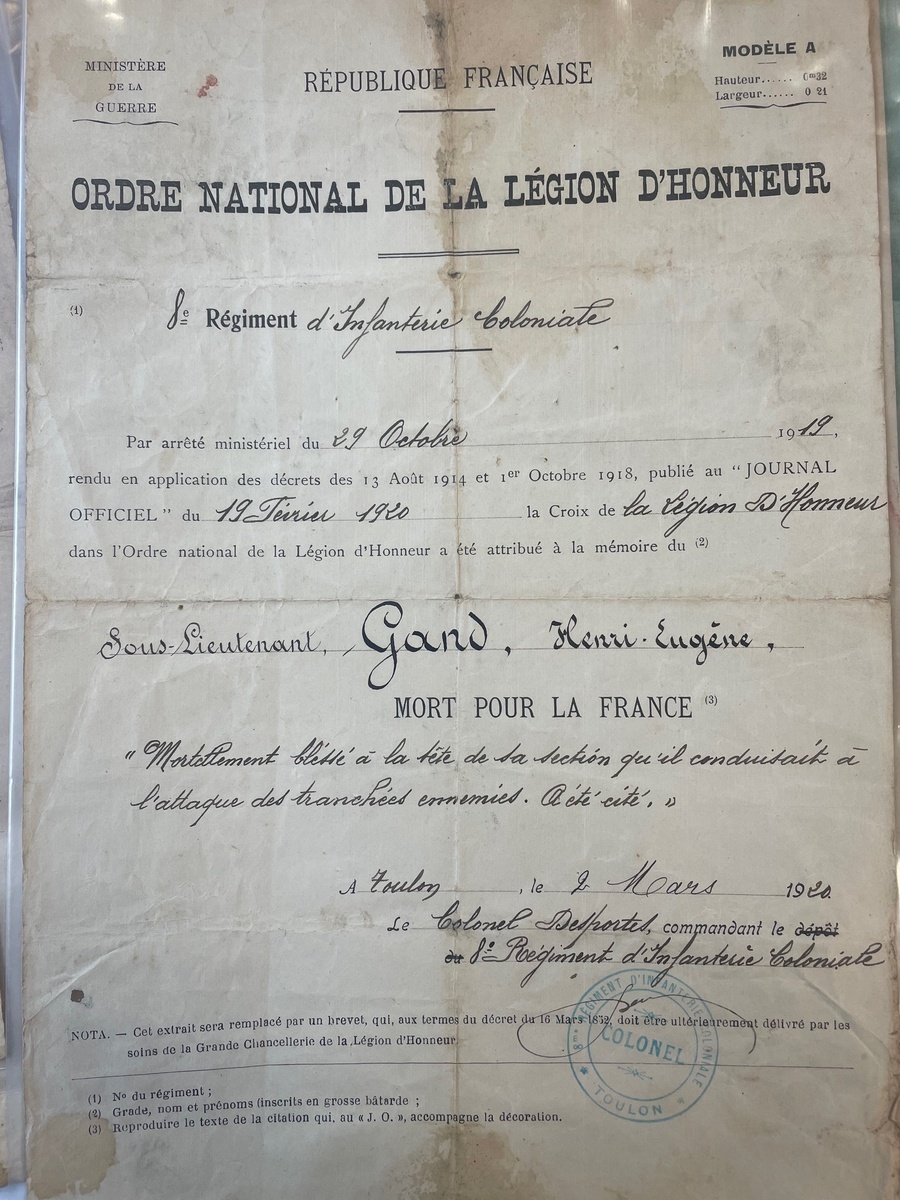 MINISTÈRE
DE LA
GUERRE
RÉPUBLIQUE FRANÇAISE
MODÈLE A
Hauteur...... 0m32
Largeur...... 0 21
ORDRE NATIONAL DE LA LÉGION D'HONNEUR
(1) 8e Régiment d'Infanterie Coloniale
Par arrêté ministériel du 29 Octobre 1919,
rendu en application des décrets des 13 Août 1914 et 1er Octobre 1918, publié au “ JOURNAL
OFFICIEL ” du 19 Février 1920 la Croix de la Légion D'Honneur
dans l'Ordre national de la Légion d'Honneur a été attribué à la mémoire du (2)
Sous-Lieutenant, Gand, Henri-Eugène,
MORT POUR LA FRANCE (3)
“ Mortellement bléssé à la tête de sa section qu'il conduisait à
l'attaque des tranchées ennemies. A été cité. »
A Toulon, le 2 Mars 1920.
Le Colonel Desportes, commandant le dépôt
du 8e Régiment d'Infanterie Coloniale
NOTA. — Cet extrait sera remplacé par un brevet, qui, aux termes du décret du 16 Mars 1852, doit être ultérieurement délivré par les
soins de la Grande Chancellerie de la Légion d'Honneur.
8me RÉGIMENT D'INFANTERIE COLONIALE
COLONEL
TOULON
(1) No du régiment ;
(2) Grade, nom et prénoms (inscrits en grosse bâtarde ;
(3) Reproduire le texte de la citation qui, au « J. O. », accompagne la décoration.